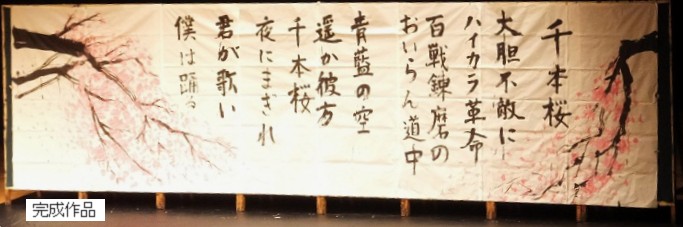 千本桜
大胆不敵に
ハイカラ革命
百戦錬磨の
おいらん道中
青藍の空
遥か彼方
千本桜
夜にまぎれ
君が歌い
僕は踊る
完成作品